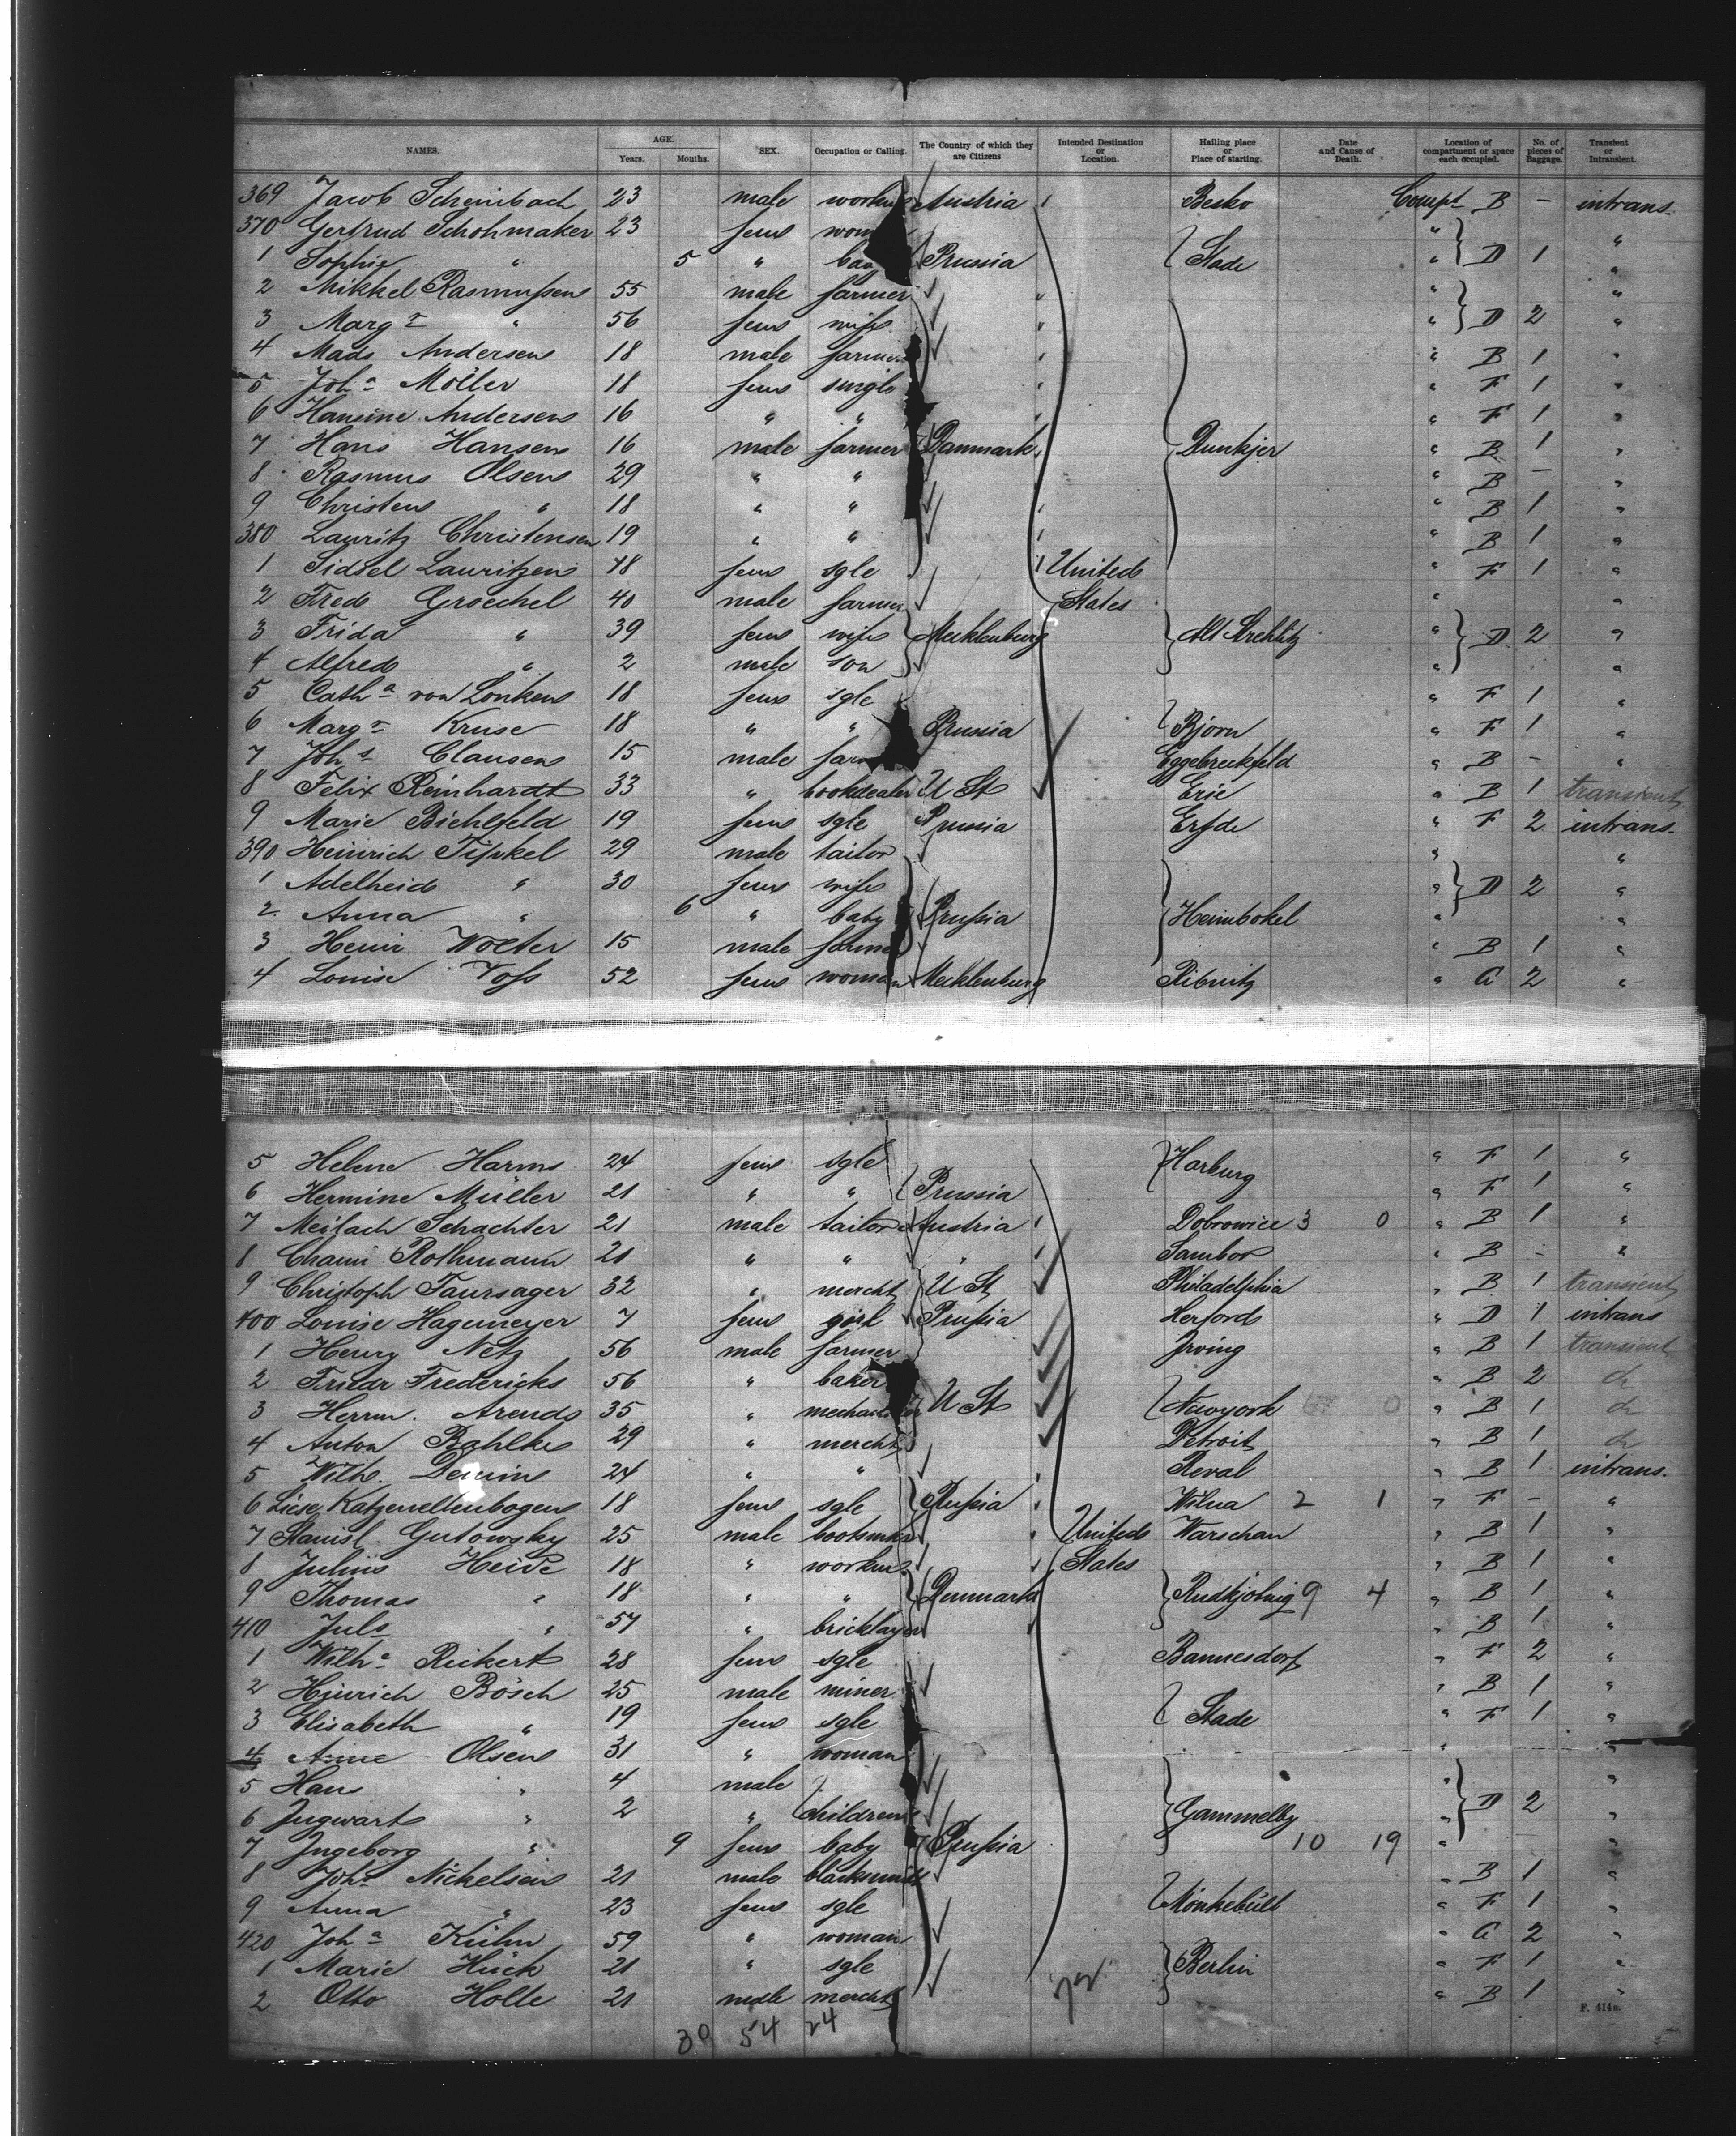 NAMES. AGE. Years. Months. SEX. Occupation or Calling. The Country of which they are Citizens Intended Destination or Location. Hailing place or Place of starting. Date and Cause of Death. Location of compartment or space each occupied. No. of pieces of Baggage. Transient or Intransient.
369 Jacob Scheinbach 23 male Austria Besko Compt B - intrans.
370 Gertrud Schohmaker 23 fem " "
1 Sophie " 5 " Prussia Stade " D 1 "
2 Mikkel Rasmussen 55 male farmer " "
3 Margr " 56 fem wife " D 2 "
4 Mads Andersen 18 male farmer " B 1 "
5 Joha Möller 18 fem single " F 1 "
6 Hansine Andersen 16 " " " F 1 "
7 Hans Hansen 16 male farmer Danmark Dunkjer " B 1 "
8 Rasmus Olsen 29 " " " B - "
9 Christen " 18 " " " B 1 "
380 Lauritz Christensen 19 " " " B 1 "
1 Sidsel Lauritzen 48 fem sgle United " F 1 "
2 Fred Groechel 40 male farmer States " "
3 Frida " 39 fem wife Mecklenburg Alt Strehlitz " D 2 "
4 Alfred " 2 male son " "
5 Catha von Lonken 18 fem sgle " F 1 "
6 Margr Kruse 18 " " Prussia Bjorn " F 1 "
7 Johs Clausen 15 male Eggebreckfeld " B - "
8 Felix Reinhardt 33 " bookdealer U St Erie " B 1 transient
9 Marie Bichlfeld 19 fem sgle Prussia Erfde " F 2 intrans.
390 Heinrich Tipkel 29 male tailor " "
1 Adelheid " 30 fem wife " D 2 "
2 Anna " 6 " baby Prussia Heimbokel " "
3 Heinr Wolter 15 male farmer " B 1 "
4 Louise Voss 52 fem woman Mecklenburg Ribnitz " G 2 "
5 Helene Harms 24 fem sgle Harburg " F 1 "
6 Hermine Müller 21 " " Prussia " F 1 "
7 Meilach Schachter 21 male tailor Austria Dobrowice 3 0 " B 1 "
8 Chaim Rothmann 21 " " " Sambor " B - "
9 Christoph Faursager 32 " mercht U St Philadelphia " B 1 transient
400 Louise Hagemeyer 7 fem girl Prussia Herford " D 1 intrans
1 Henry Netz 56 male farmer Irving " B 1 transient
2 Friedr Fredericks 56 " baker " B 2 do
3 Herm. Arends 35 " U St Newyork 0 " B 1 do
4 Anton Bahlke 29 " mercht Detroit " B 1 do
5 Wilh. 24 " " Reval " B 1 intrans.
6 Liese Katzenellenbogen 18 fem sgle Russia Wilna 2 1 " F - "
7 Stanisl. Gutowsky 25 male United Warschau " B 1 "
8 Julius Heide 18 " workm States " B 1 "
9 Thomas " 18 " " Denmark Rudkjobing 9 4 " B 1 "
410 Juls " 57 " bricklayer " B 1 "
1 Wilha Rickert 28 fem sgle Bannesdorf " F 2 "
2 Hinrich Bösch 25 male miner " B 1 "
3 Elisabeth " 19 fem sgle Stade " F 1 "
4 Anne Olsen 31 " woman " "
5 Hans " 4 male " "
6 Ingwart " 2 " children Gammelby " D 2 "
7 Ingeborg " 9 fem baby Prussia 10 19 " "
8 Johs Nickelsen 21 male blacksmith " B 1 "
9 Anna " 23 fem sgle Mönkebüll " F 1 "
420 Joha Kühn 59 " woman " G 2 "
1 Marie Hück 21 " sgle Berlin " F 1 "
2 Otto Holle 21 male mercht " B 1 "
F. 414a.
30 54 24